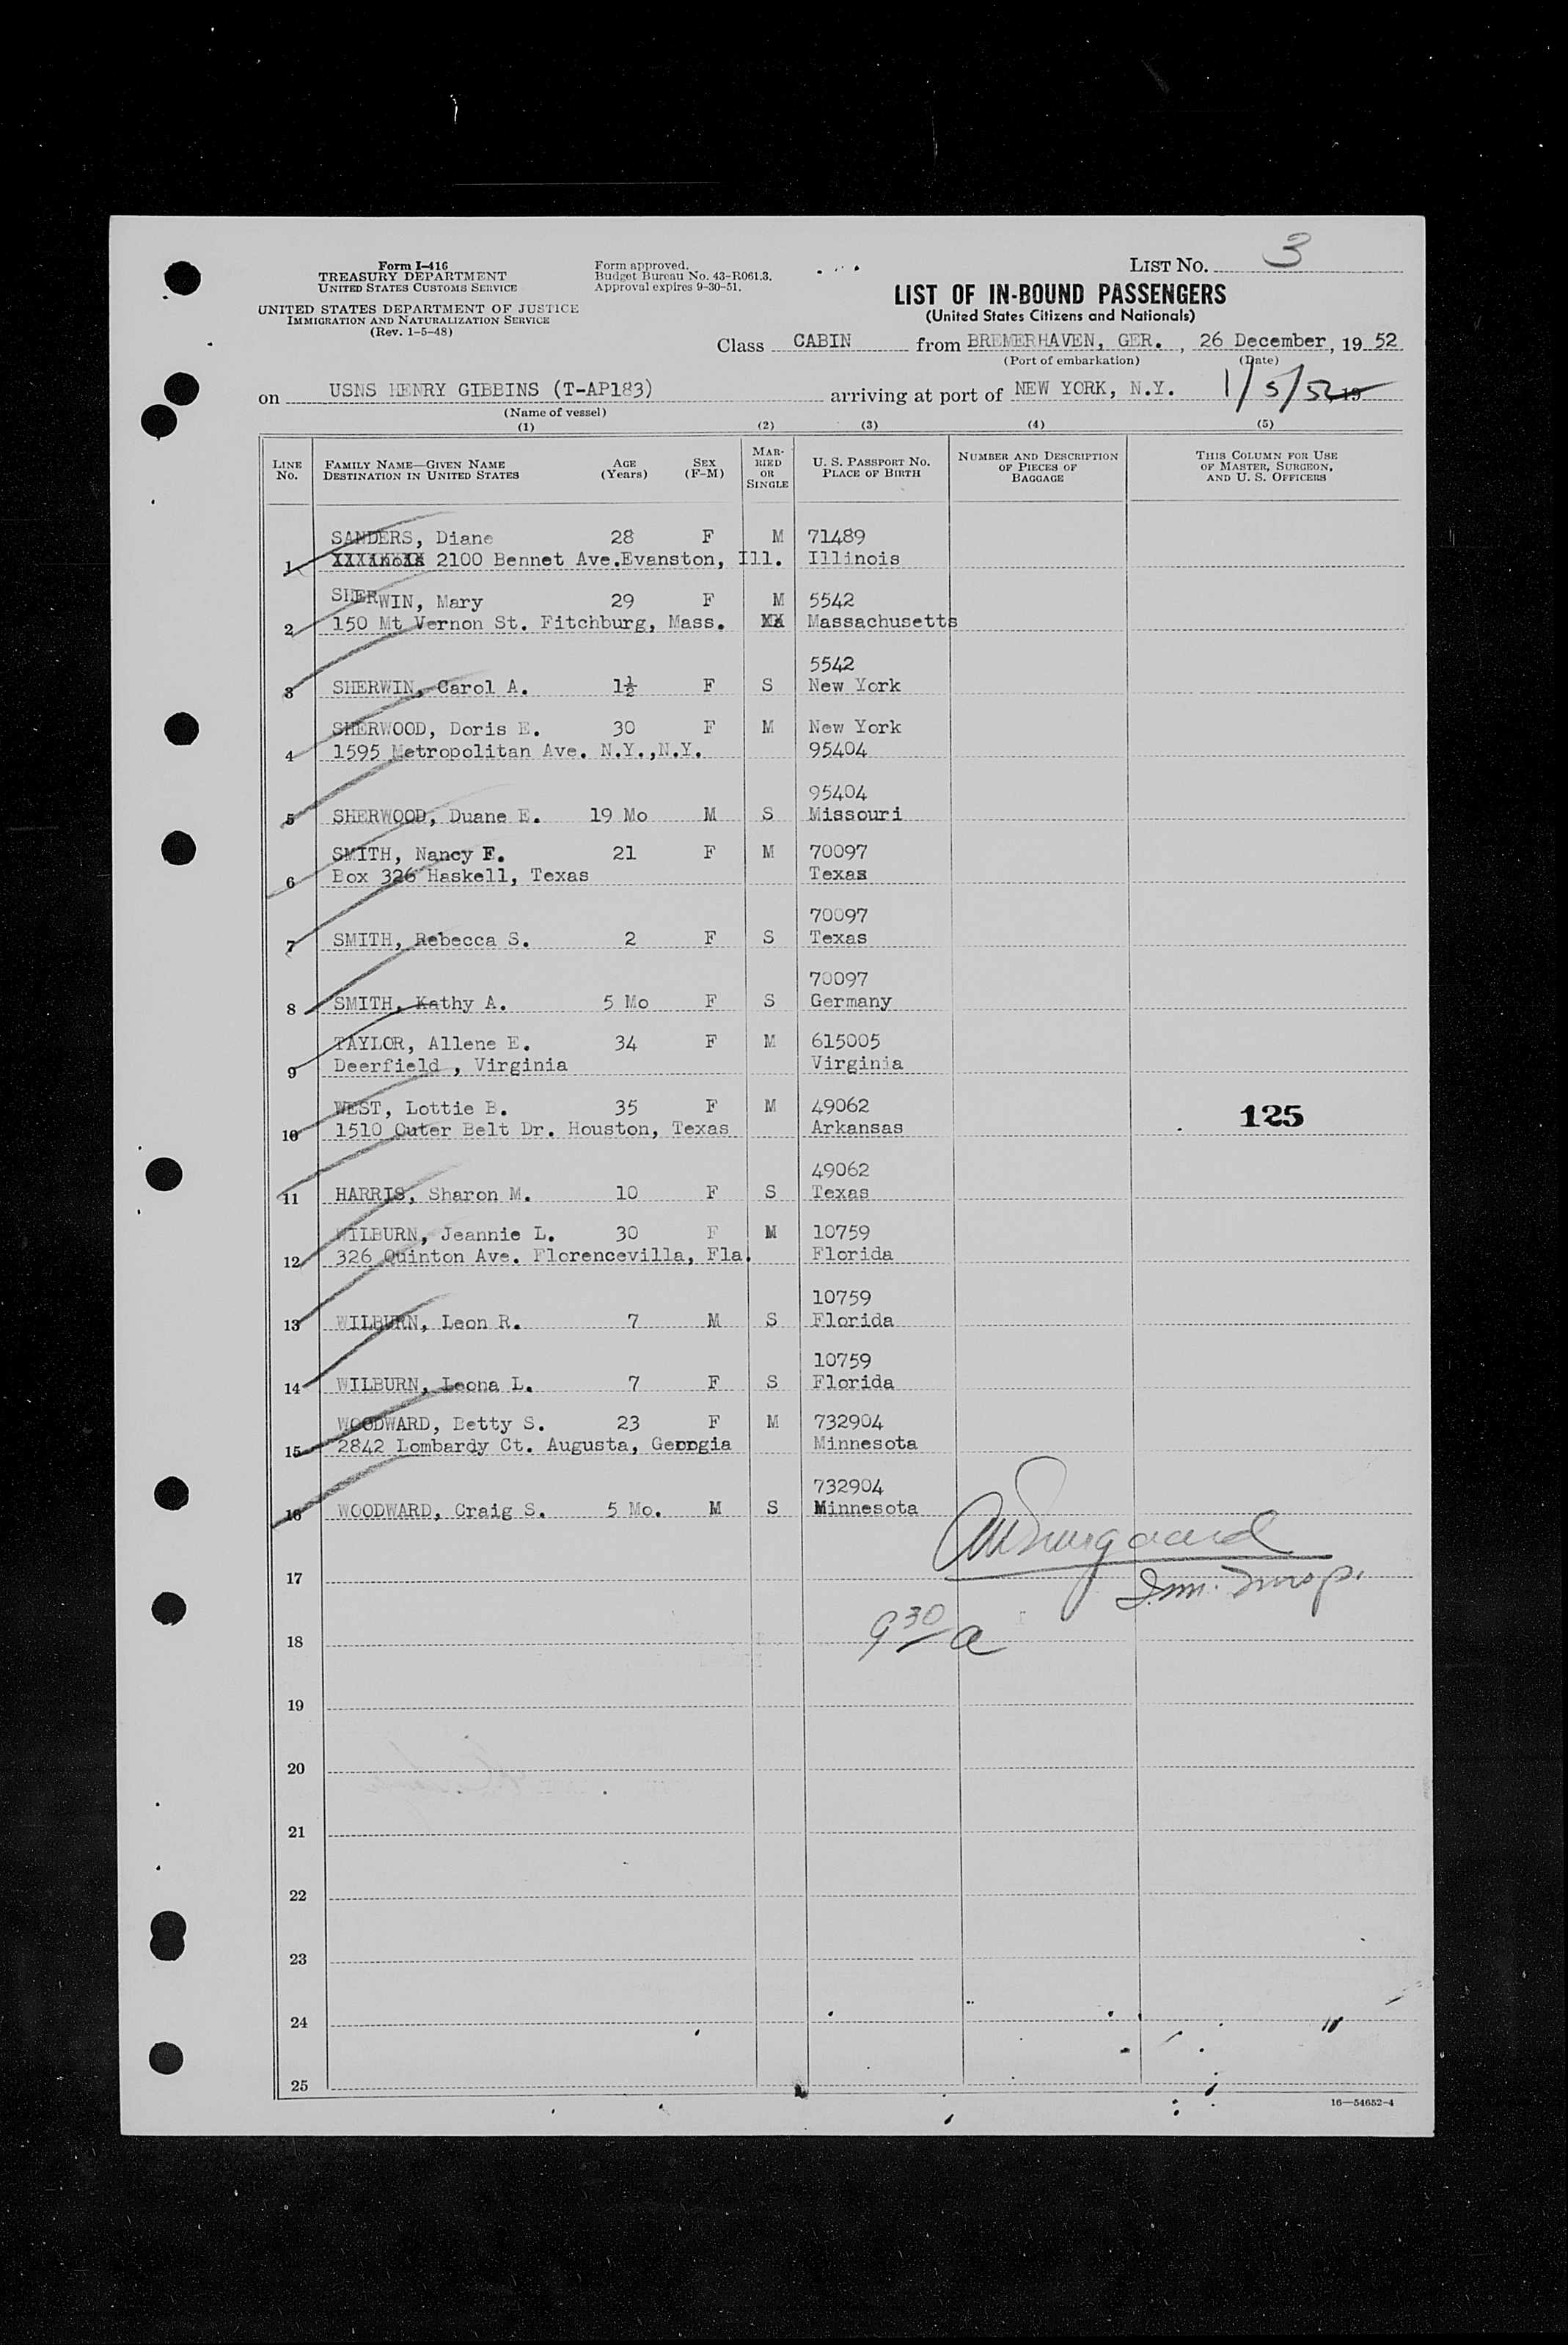 Form I-416
TREASURY DEPARTMENT
UNITED STATES CUSTOMS SERVICE
UNITED STATES DEPARTMENT OF JUSTICE
IMMIGRATION AND NATURALIZATION SERVICE
(Rev. 1-5-48)
Form approved.
Budget Bureau No. 43-R061.3.
Approval expires 9-30-51.
LIST NO. 3
LIST OF IN-BOUND PASSENGERS
(United States Citizens and Nationals)
Class CABIN from BREMERHAVEN, GER. , 26 December, 19 52
(Port of embarkation) (Date)
on USNS HENRY GIBBINS (T-AP183) arriving at port of NEW YORK, N.Y. 1/5/52 19
(Name of vessel)
(1) (2) (3) (4) (5)
LINE NO. FAMILY NAME—GIVEN NAME DESTINATION IN UNITED STATES AGE (Years) SEX (F-M) MARRIED OR SINGLE U. S. PASSPORT NO. PLACE OF BIRTH NUMBER AND DESCRIPTION OF PIECES OF BAGGAGE THIS COLUMN FOR USE OF MASTER, SURGEON, AND U. S. OFFICERS
SANDERS, Diane 28 F M 71489
1 2100 Bennet Ave.Evanston, Ill. Illinois
SHERWIN, Mary 29 F M 5542
2 150 Mt Vernon St. Fitchburg, Mass. Massachusetts
5542
3 SHERWIN, Carol A. 1½ F S New York
SHERWOOD, Doris E. 30 F M New York
4 1595 Metropolitan Ave. N.Y.,N.Y. 95404
95404
5 SHERWOOD, Duane E. 19 Mo M S Missouri
SMITH, Nancy F. 21 F M 70097
6 Box 326 Haskell, Texas Texas
70097
7 SMITH, Rebecca S. 2 F S Texas
70097
8 SMITH, Kathy A. 5 Mo F S Germany
TAYLOR, Allene E. 34 F M 615005
9 Deerfield , Virginia Virginia
WEST, Lottie B. 35 F M 49062 125
10 1510 Outer Belt Dr. Houston, Texas Arkansas
49062
11 HARRIS, Sharon M. 10 F S Texas
WILBURN, Jeannie L. 30 F M 10759
12 326 Quinton Ave. Florencevilla, Fla. Florida
10759
13 WILBURN, Leon R. 7 M S Florida
10759
14 WILBURN, Leona L. 7 F S Florida
WOODWARD, Betty S. 23 F M 732904
15 2842 Lombardy Ct. Augusta, Georgia Minnesota
732904
16 WOODWARD, Craig S. 5 Mo. M S Minnesota
17 Imm. Insp.
18 9 30 a
19
20
21
22
23
24
25
16—54652-4